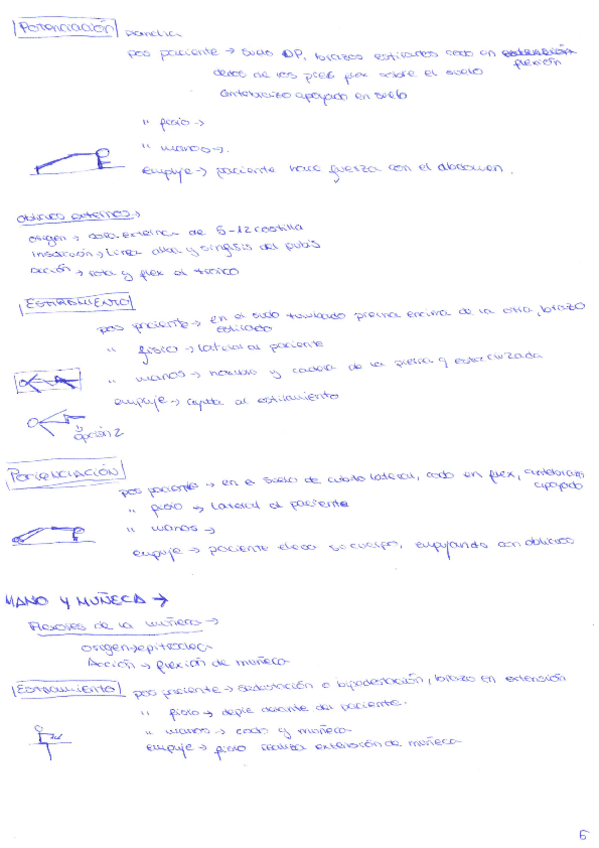 POTENCIACIÓN plancha
pos paciente → suelo DP, brazos estirados codo en extensión flexión
dedos de los pies flex sobre el suelo
antebrazo apoyado en suelo
" fisio →
" manos →.
empuje → paciente hace fuerza con el abdomen.
Oblicuo externos →
origen → cara externa de 5-12 costilla
Inserción → Linea alba y sinfisis del pubis
acción → rota y flex el tronco
ESTIRAMIENTO
pos paciente → en el suelo tumbado pierna encima de la otra, brazo estirado
" fisio → lateral al paciente
" manos → hombro y cadera de la pierna q esta cruzada
empuje → contra al estiramiento
opción 2
POTENCIACIÓN
pos paciente → en el suelo de cubito lateral, codo en flex, antebrazo apoyado
" fisio → Lateral al paciente
" manos →
empuje → paciente eleva su cuerpo, empujando con oblicuos
MANO Y MUÑECA →
Flexores de la muñeca →
origen → epitroclea
Acción → flexión de muñeca
Estiramiento pos paciente → sedestación o bipedestación, brazo en extensión
" fisio → de pie delante del paciente.
" manos → codo y muñeca
empuje → fisio realiza extensión de muñeca
6